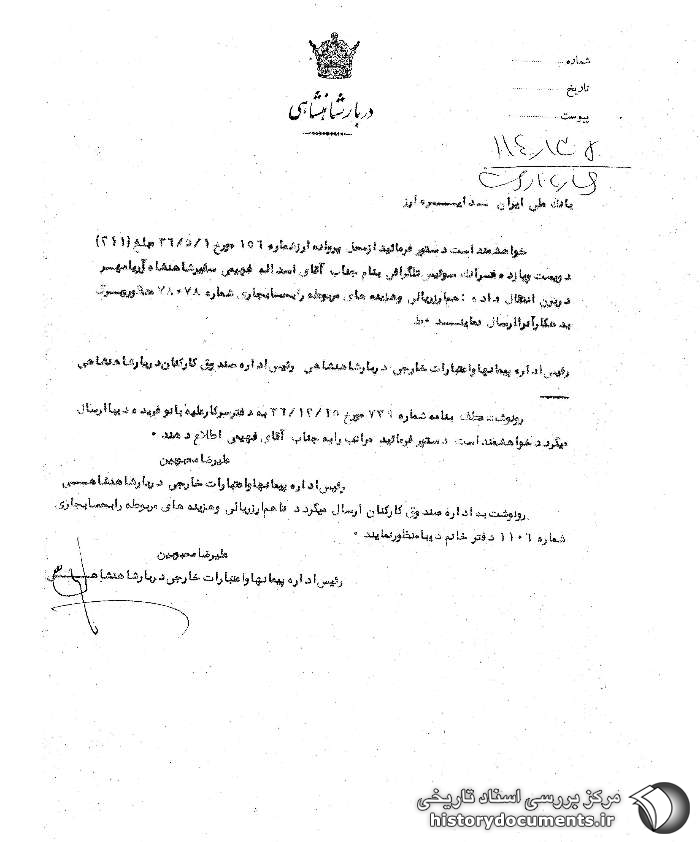 دربار شاهنشاهی
شماره
تاریخ
پیوست
بانک ملی ایران اداره ارز
خواهشمند است دستور فرمائید از محل پروانه ارز شماره ۱۵۶ مورخ ۳۶/۵/۱ مبلغ (۲۴۱)
دویست و فرانک سوئیس تلگرافی بنام جناب آقای اسداله فهیمی سفیر شاهنشاه آریامهر
در برن انتقال داده هم ارز ریالی و هزینه های مربوطه را بحسابجاری شماره ۷۸۰۷۸ منظور و صورت
بدهکار آنرا ارسال نمایند
رئیس اداره پیمانها و اعتبارات خارجی دربار شاهنشاهی رئیس اداره صندوق کارکنان دربار شاهنشاهی
رونوشت عطف بنامه شماره ۷۳۹ مورخ ۳۶/۱۲/۱۵ به دفتر سرکار علیه بانو فریده دیبا ارسال
میگردد خواهشمند است دستور فرمائید مراتب را به جناب آقای فهیمی اطلاع دهند ۰
علیرضا محبوبین
رئیس اداره پیمانها و اعتبارات خارجی دربار شاهنشاهی
رونوشت به اداره صندوق کارکنان ارسال میگردد تا هم ارز ریالی و هزینه های مربوطه را بحسابجاری
شماره ۱۱۰۶ دفتر خانم دیبا منظور نمایند ۰
علیرضا محبوبین
رئیس اداره پیمانها و اعتبارات خارجی دربار شاهنشاهی
مرکز بررسی اسناد تاریخی
historydocuments.ir